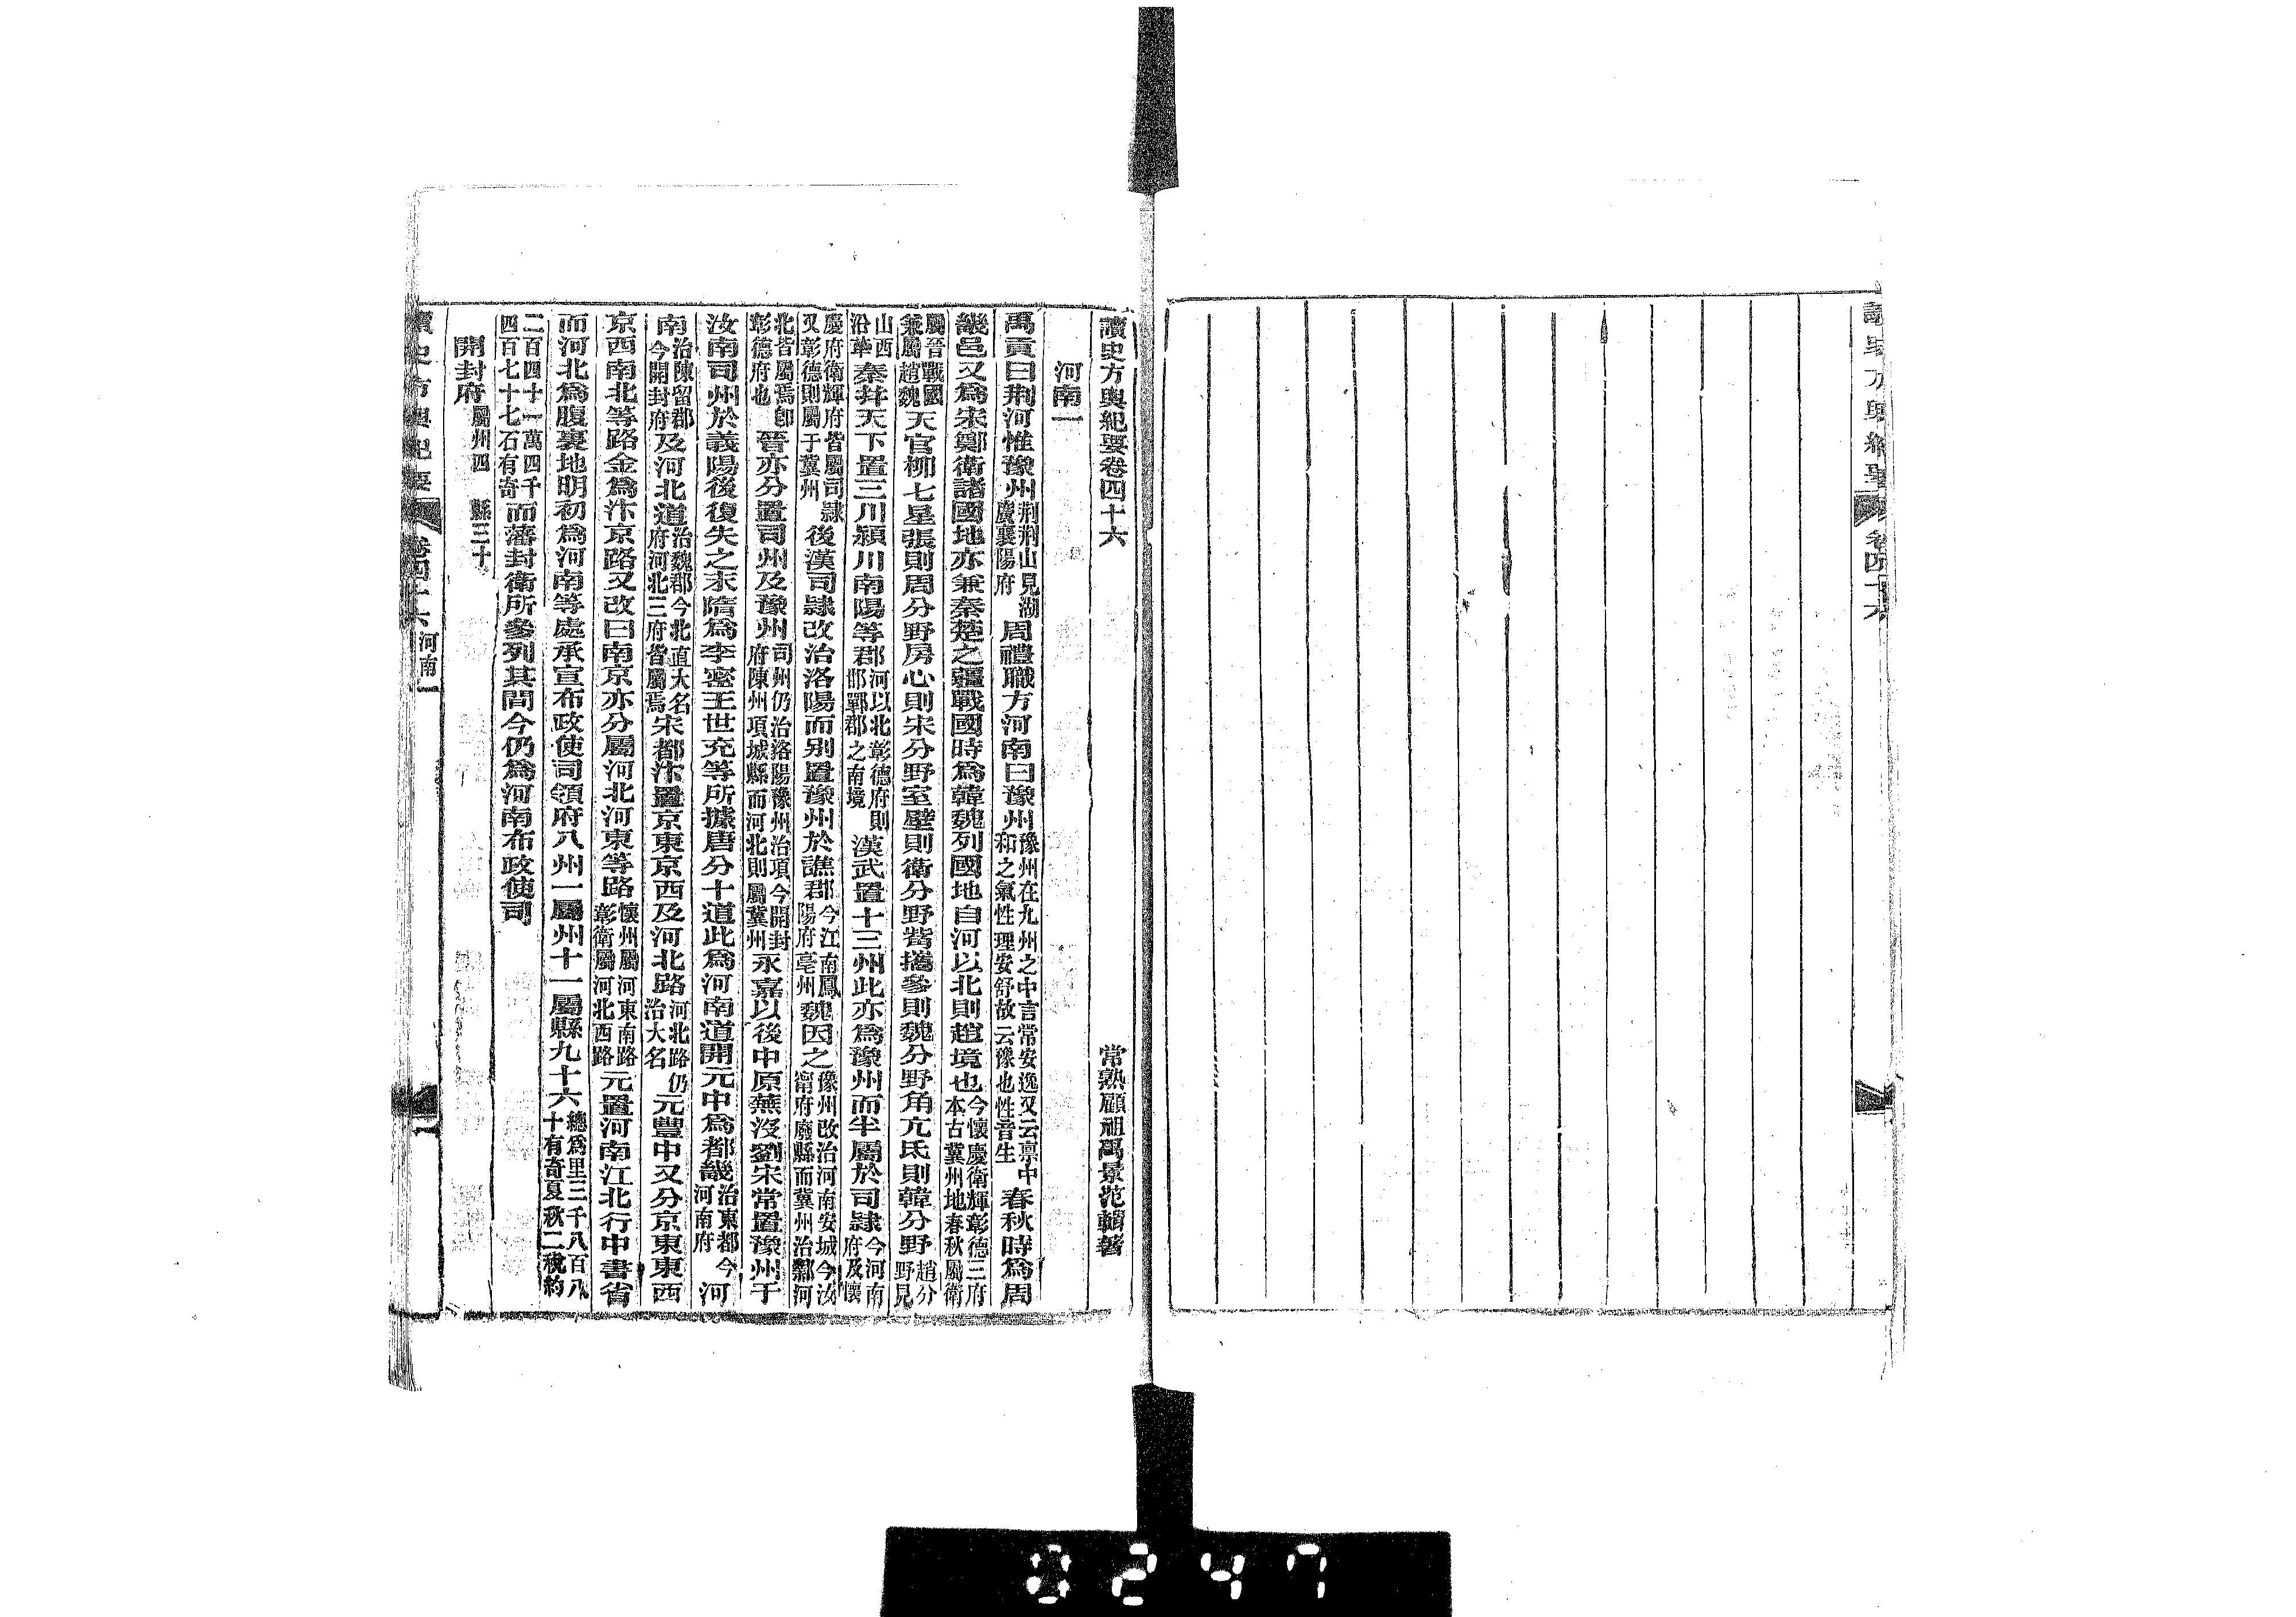 讀史方輿紀要卷四十六
讀史方輿紀要卷四十六 常熟顧祖禹景范輯著
河南一
禹貢曰荆河惟豫州荆荆山見湖廣襄陽府周禮職方河南曰豫州豫州在九州之中言常安逸又云禀中和之氣性理安舒故云豫也性音生春秋時爲周
畿邑又爲宋鄭衛諸國地亦兼秦楚之疆戰國時爲韓魏列國地自河以北則趙境也今懷慶衛輝彰德三府本古冀州地春秋屬衛
屬晉戰國兼屬趙魏天官柳七星張則周分野房心則宋分野室壁則衛分野觜觿參則魏分野角亢氐則韓分野趙分野見
山西沿革秦并天下置三川潁川南陽等郡河以北彰德府則邯鄲郡之南境漢武置十三州此亦爲豫州而半屬於司隷今河南府及懷
慶府衛輝府皆屬司隷又彰德則屬于冀州後漢司隷改治洛陽而别置豫州於譙郡今江南鳳陽府亳州魏因之豫州改治河南安城今汝甯府廢縣而冀州治鄴河
北皆屬焉卽彰德府也晉亦分置司州及豫州司州仍治洛陽豫州治項今開封府陳州項城縣而河北則屬冀州永嘉以後中原蕪沒劉宋常置豫州于
汝南司州於義陽後復失之末隋爲李密王世充等所據唐分十道此爲河南道開元中爲都畿治東都今河南府河
南治陳留郡今開封府及河北道治魏郡今北直大名府河北三府皆屬焉宋都汴置京東京西及河北路河北路仍治大名元豐中又分京東東西
京西南北等路金爲汴京路又改曰南京亦分屬河北河東等路懷州屬河東南路彰衛屬河北西路元置河南江北行中書省
而河北爲腹裏地明初爲河南等處承宣布政使司領府八州一屬州十一屬縣九十六總爲里三千八百八十有奇夏秋二稅約
二百四十一萬四千四百七十七石有奇而藩封衛所參列其間今仍爲河南布政使司
開封府屬州四 縣三十
讀史方輿紀要 卷四十六 河南一 一